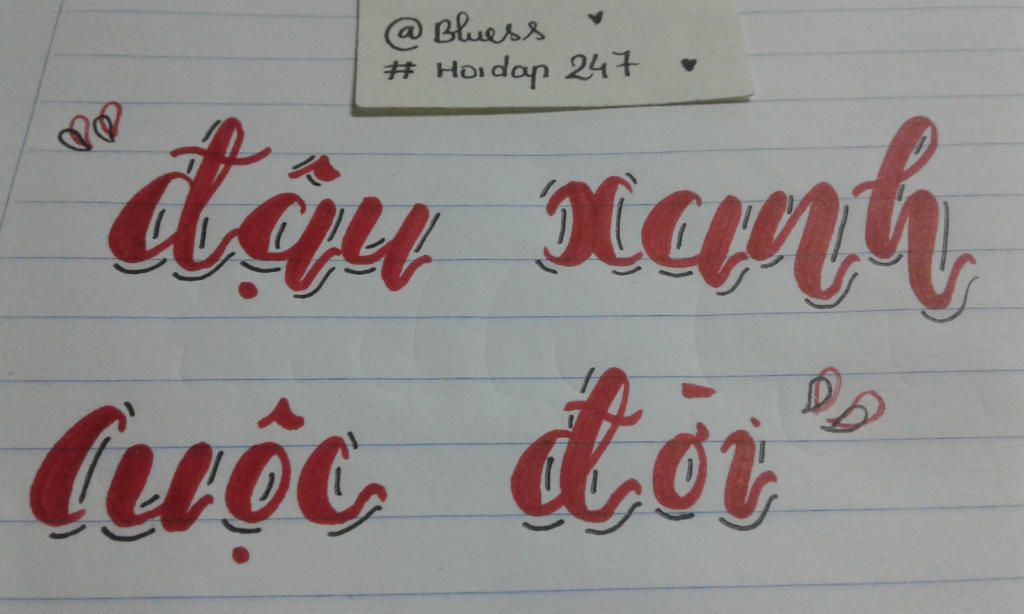 @Bluess
# Hoidap 247
đậu xanh
cuộc đời